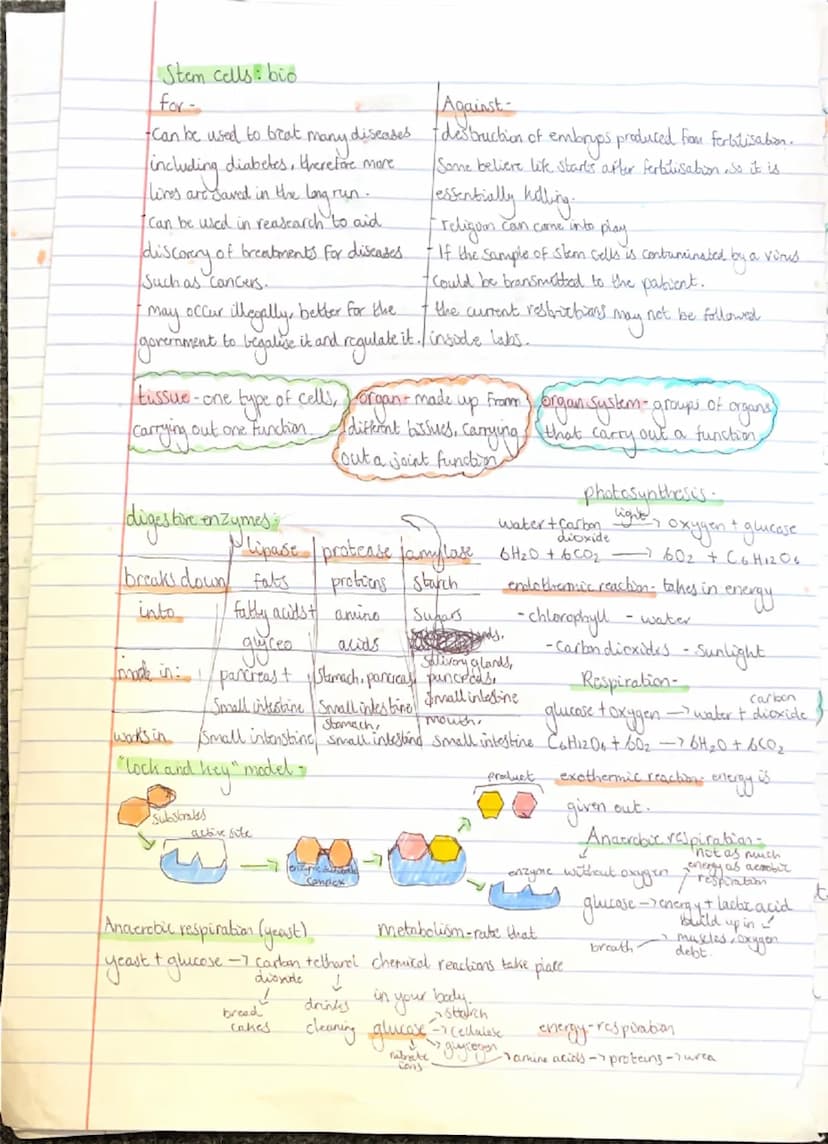 Stem cells: bio
For -
- Can be used to treat many diseases
including diabetes, therefore more
lives are saved in the long run.
- can be used in reasearch to aid
discovery of treatments for diseases
such as cancers.
- may occur illegally, better for the
government to legalise it and regulate it.
Against -
- destruction of embryos produced from fertilisation.
Some believe life starts after fertilisation, so it is
essentially killing.
- religion can come into play
- If the sample of stem cells is contaminated by a virus
could be transmitted to the patient.
- the current restrictions may not be followed
inside labs.
tissue - one type of cells,
carrying out one function.
organ - made up from
different tissues, carrying
out a joint function
organ system - groups of organs
that carry out a function
digestive enzymes:
lipase protease amylase
breaks down fats protiens starch
into fatty acids + amino sugars
glyceo acids
made in: pancreas + Stomach, pancreas salivory glands,
pancreas,
small intestine small intestine small intestine
works in small intenstine stomach, small intestine mouth, small intestine
photosynthesis -
water + carbon dioxide light → oxygen + glucose
6H2O + 6CO2 → 6O2 + C6H12O6
endothermic reaction - takes in energy
- chlorophyll - water
- Carbon dioxides - sunlight
Respiration -
glucose + oxygen → water + carbon dioxide
C6H12O6 + 6O2 → 6H2O + 6CO2
exothermic reaction - energy is
given out.
"lock and key" model -
substrates
active site
enzyme substrate
complex
product
enzyme
Anaerobic respiration -
without oxygen
not as much
energy as aerobic
respiration
glucose → energy + lactic acid
build up in
muscles, oxygen
debt.
breath
Anaerobic respiration (yeast)
yeast + glucose → carbon + ethanol
dioxide
bread
cakes
drinks
cleaning
metabolism - rate that
chemical reactions take place
in your body.
glucose → starch
→ cellulose
→ glycogen
nitrate
ions
→ amine acids → proteins → urea
energy - respiration